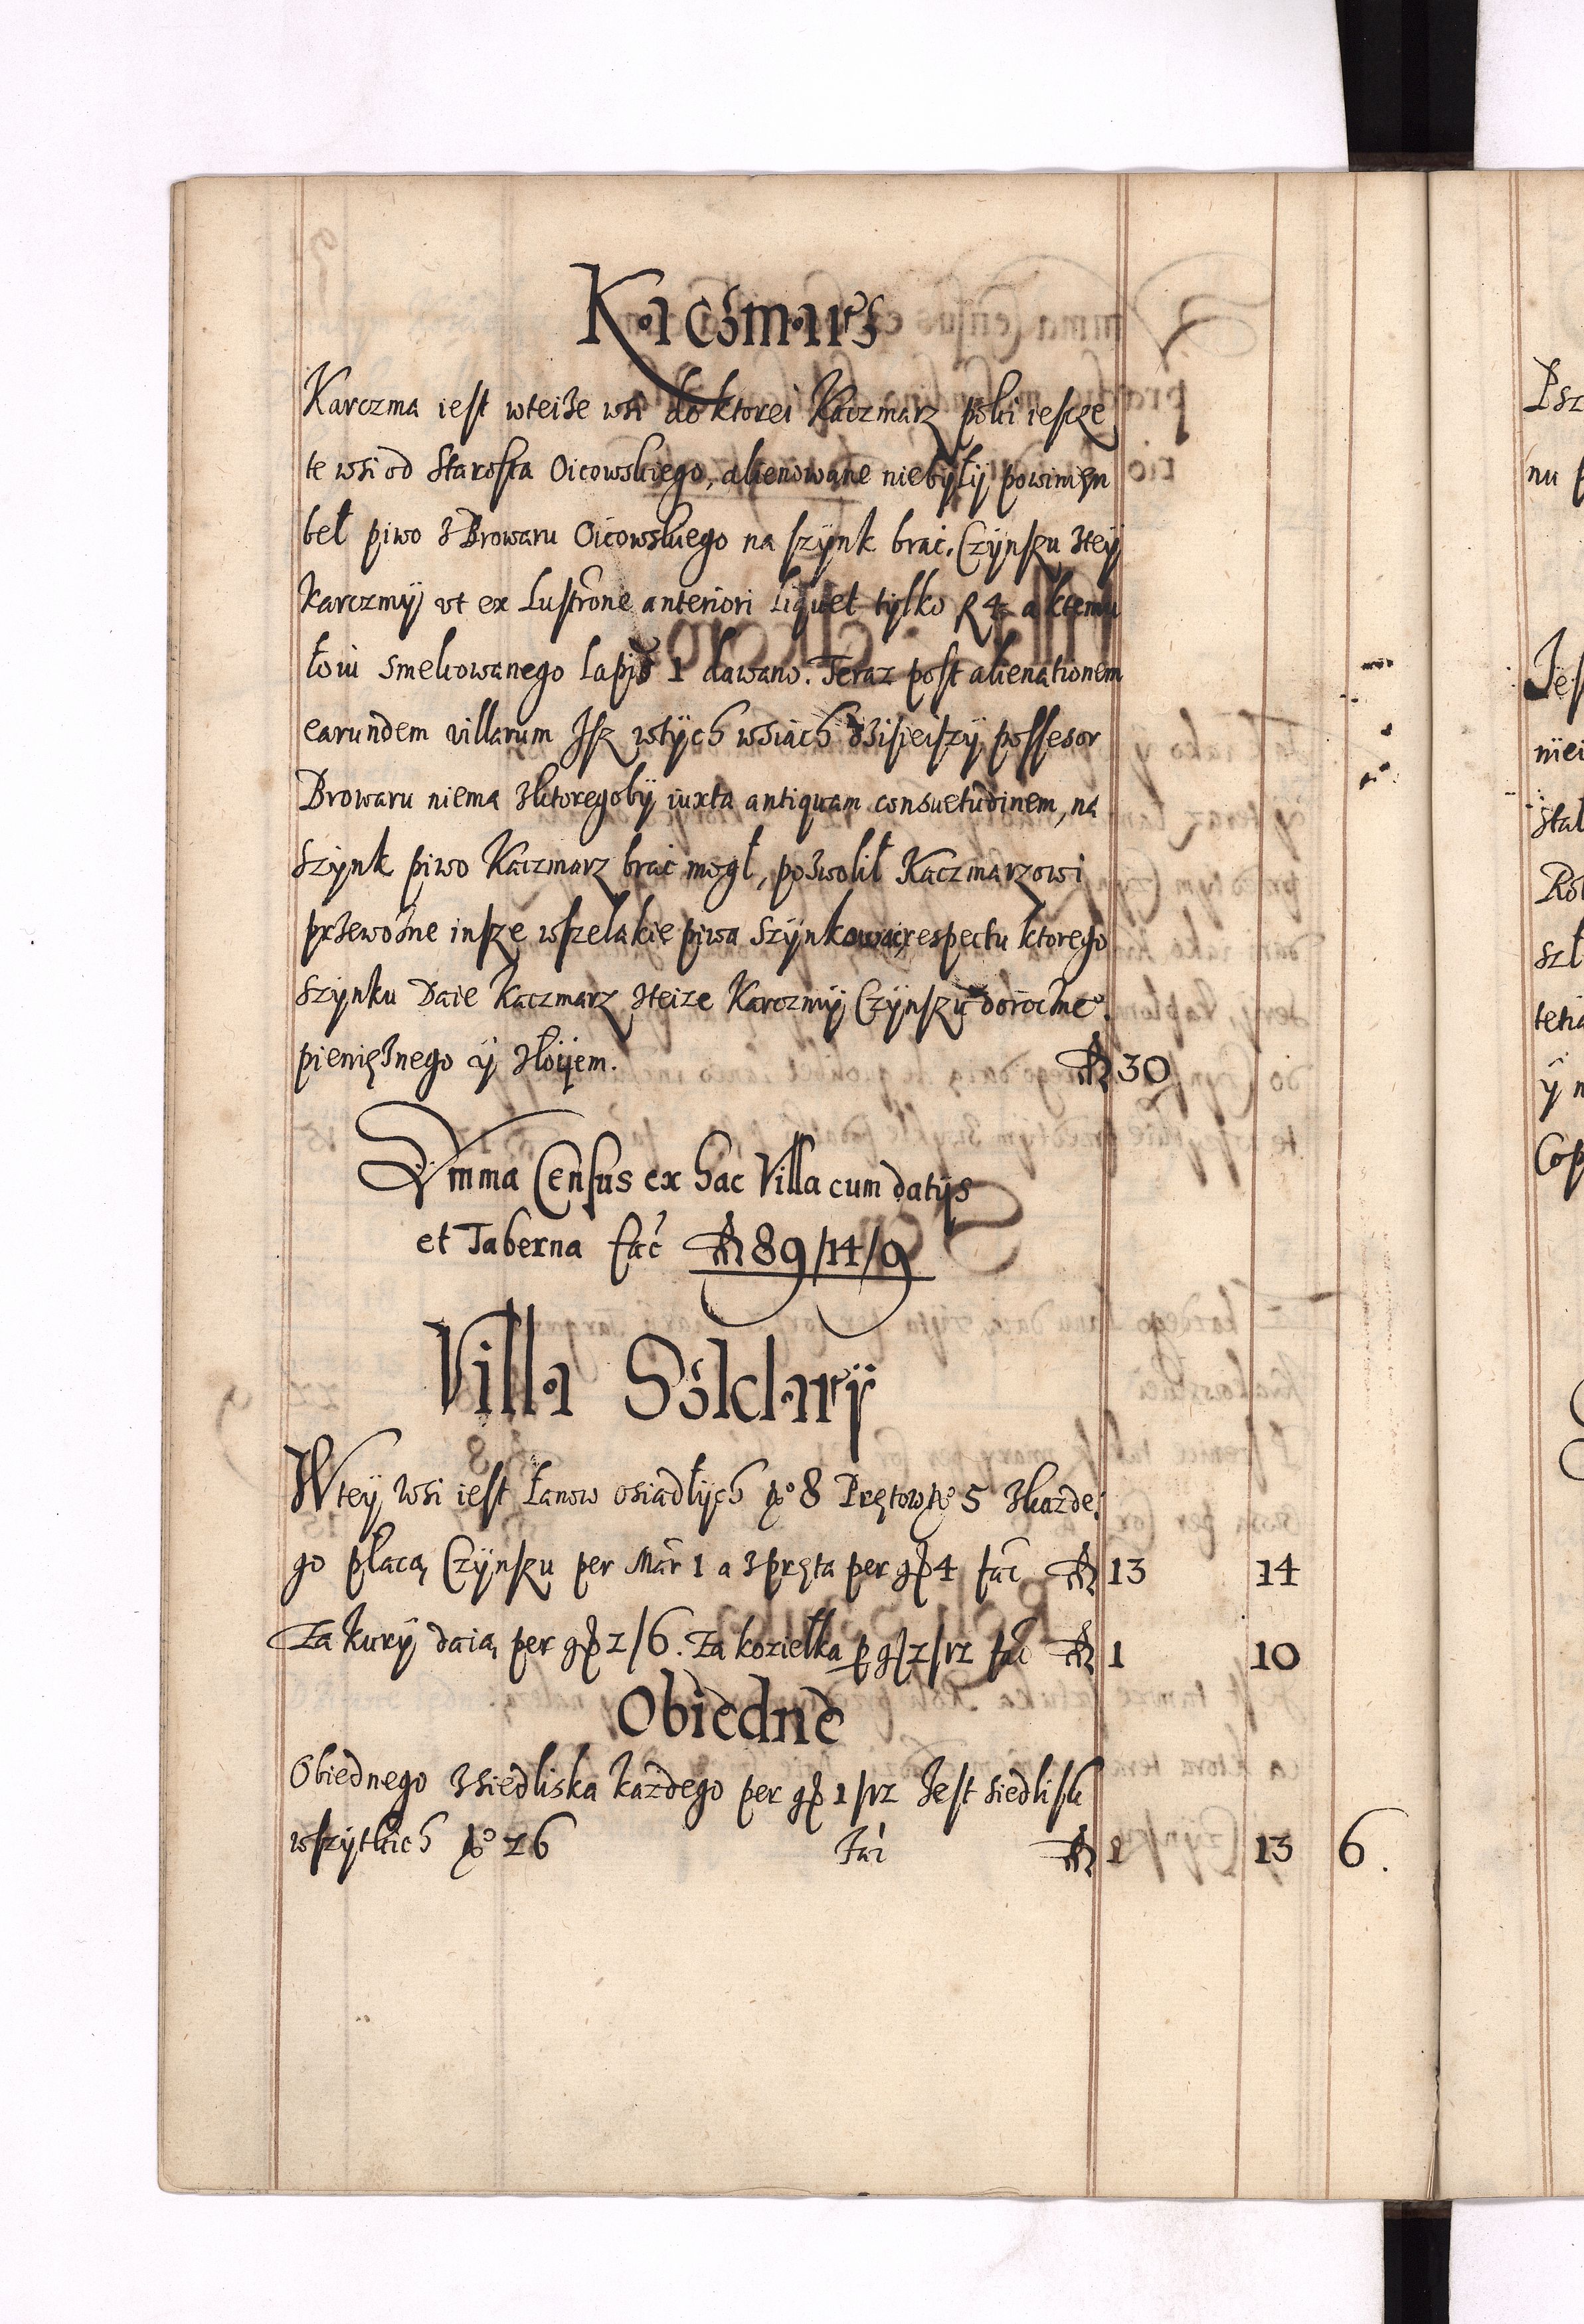 Kaczmarz
Karczma iest wteiże wsi do ktorei Kaczmarz poki iescze
te wsi od Starosta Oicowskiego, alienowane niebyłÿ powinięn
beł piwo z Browaru Oicowskiego na szÿnk brać, Czÿnszu zteÿ
karczmÿ vt ex Lustrone anteriori liquet tylko R 4 a ktemu
łoiu smelcowanego lapid 1 dawano. Teraz post alienationem
earundem villarum Isz wtÿch wsiach dzisieiszÿ possesor
Browaru niema zktoregobÿ iuxta antiquam consuetudinem, na
szÿnk piwo Kaczmarz brać mogł, pozwolił Kaczmarzowi
przewoźne insze wszelakie piwa szÿnkować, respectu ktorego
szynku Daie Kaczmarz zteize Karczmÿ Czÿnszu dorocznego
pieniężnego ÿ złoÿem. 30
Summa Census ex hac Villa cum datÿs
et Taberna fac 89/14/9
Villa Szklarÿ
Wteÿ Wsi iest Łanow osiadłÿch No 8 Prętow No 5 zkażde,
go płacą Czÿnszu per Mar 1 a z pręta per gr 4 fac 13 14
Za kurÿ daią per gr 2/6. Za koziełka p gr 2/12 fac 1 10
Obiedne
Obiednego z siedliska każdego per gr 1/12 Jest siedlisk
wszytkich No 26 fac 1 13 6.